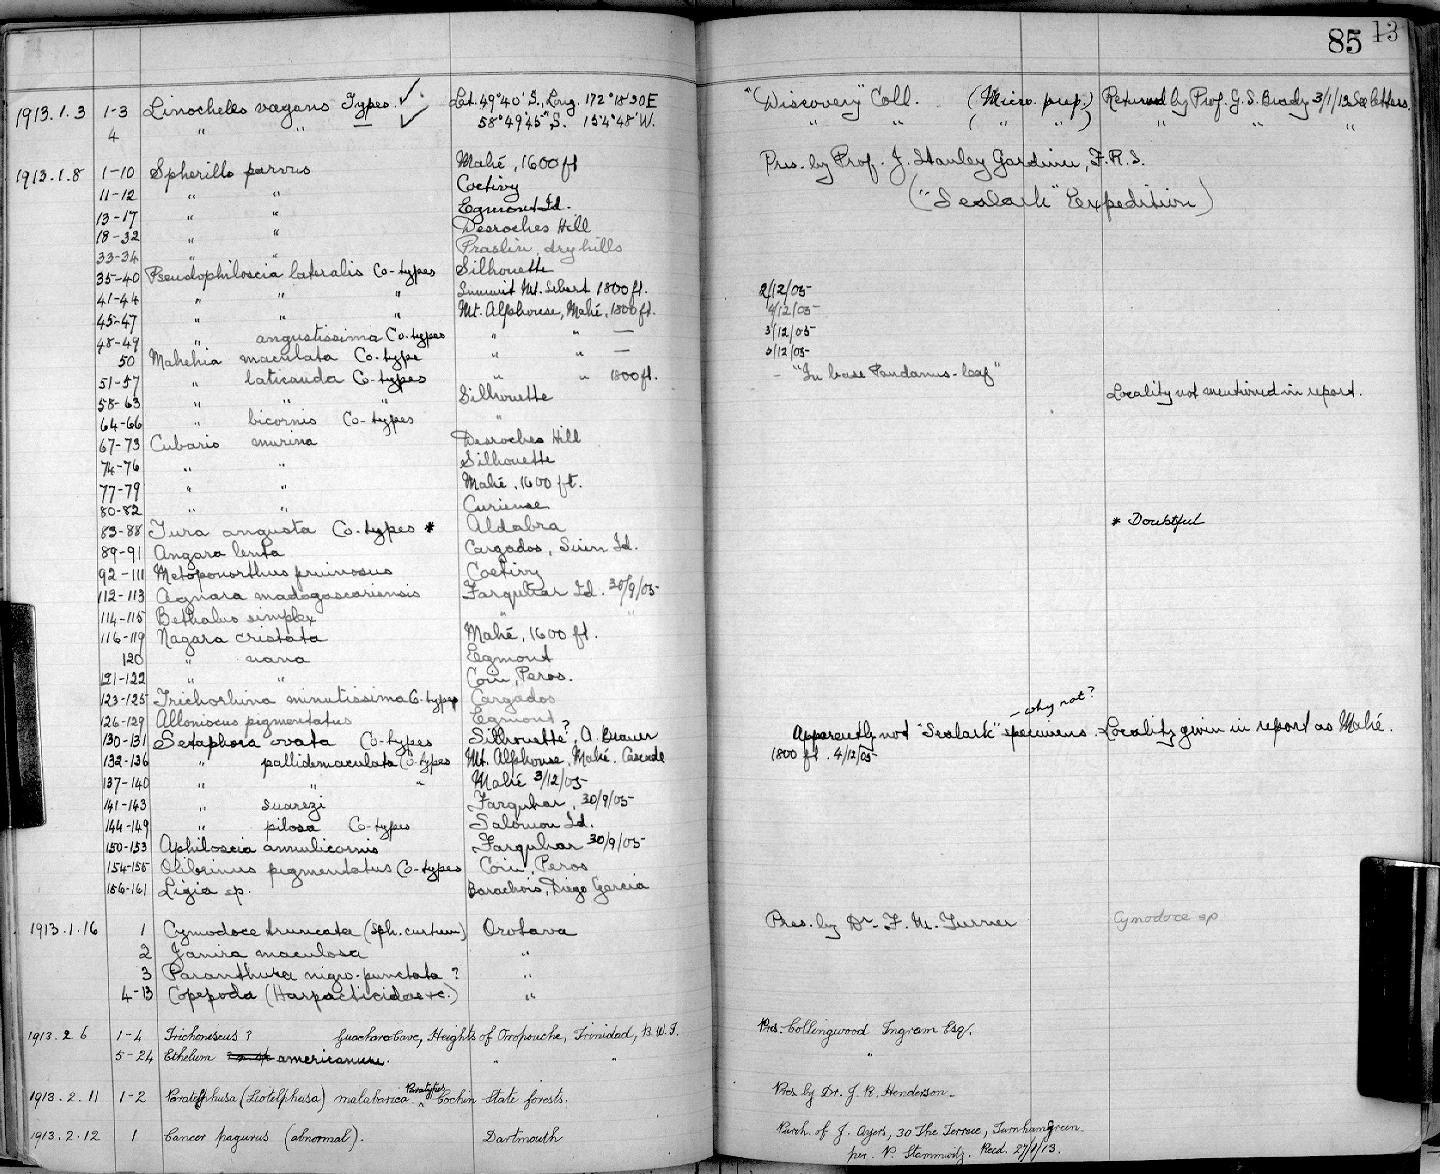 85 13
1913.1.3 1-3 Linocheles vagans Types ✓. Lat. 49°40' S., Long. 172°18'30E "Discovery" Coll. (Micro. prep.) Returned by Prof. G.S. Brady 3/1/13 See letters.
4 " " ✓ 58°49'45" S. 154°48'W. " " ( " " ) " " "
1913.1.8 1-10 Spherillo parvus Mahé, 1600 ft Pres. by Prof. J. Stanley Gardiner, F.R.S.
11-12 " " Coetivy ("Sealark" Expedition)
13-17 " " Egmont Id.
18-32 " " Desroches Hill
33-34 " " Praslin, dry hills
35-40 Pseudophiloscia lateralis Co-types Silhouette
41-44 " " " Summit Mt. Sebert 1800 ft. 2/12/05
45-47 " " " Mt. Alphonse, Mahé, 1800 ft. 4/12/05
48-49 " angustissima Co-types " " — 3/12/05
50 Mahehia maculata Co-type " " — 3/12/05
51-57 " laticauda Co-types " " 1800 ft. - "In base Pandanus-leaf"
58-63 " " " Silhouette Locality not mentioned in report.
64-66 " bicornis Co-types "
67-73 Cubaris murina Desroches Hill
74-76 " " Silhouette
77-79 " " Mahé, 1600 ft.
80-82 " " Curieuse
83-88 Tura angusta Co-types * Aldabra * Doubtful
89-91 Angara lenta Cargados, Siren Id.
92-111 Metoponorthus pruinosus Coetivy
112-113 Agnara madagascariensis Farquhar Id. 30/9/05
114-115 Bethalus simplex " "
116-119 Nagara cristata Mahé, 1600 ft.
120 " nana Egmont
121-122 " " Coin, Peros.
123-125 Trichorhina minutissima Co-types Cargados
126-129 Alloniscus pigmentatus Egmont - why not?
130-131 Setaphora ovata Co-types Silhouette?, A. Brauer Apparently not "Sealark" specimens. Locality given in report as Mahé.
132-136 " pallidemaculata Co-types Mt. Alphonse, Mahé. Cascade 1800 ft. 4/12/05
137-140 " " " Mahé 3/12/05
141-143 " suarezi Farquhar, 30/9/05
144-149 " pilosa Co-types Salomon Id.
150-153 Aphiloscia annulicornis Farquhar 30/9/05
154-155 Olibrinus pigmentatus Co-types Coin, Peros
156-161 Ligia sp. Barachois, Diego Garcia
1913.1.16 1 Cymodoce truncata (Sph. curtum) Orotava Pres. by Dr. F. M. Turner Cymodoce sp
2 Janira maculosa "
3 Paranthura nigro-punctata ? "
4-13 Copepoda (Harpacticidae &c.) "
1913.2.6 1-4 Trichoniscus ? Guacharo Cave, Heights of Oropouche, Trinidad, B.W.I. Pres. Collingwood Ingram Esq/.
5-24 Ethelum americanum. " " "
1913.2.11 1-2 Paratelphusa (Liotelphusa) malabarica Paratypes Cochin State forests. Pres by Dr. J. R. Henderson.
1913.2.12 1 Cancer pagurus (abnormal). Dartmouth Purch. of J. Ayers, 30 The Terrace, Turnhamgreen.
per. P. Stammwitz. Recd. 27/1/13.